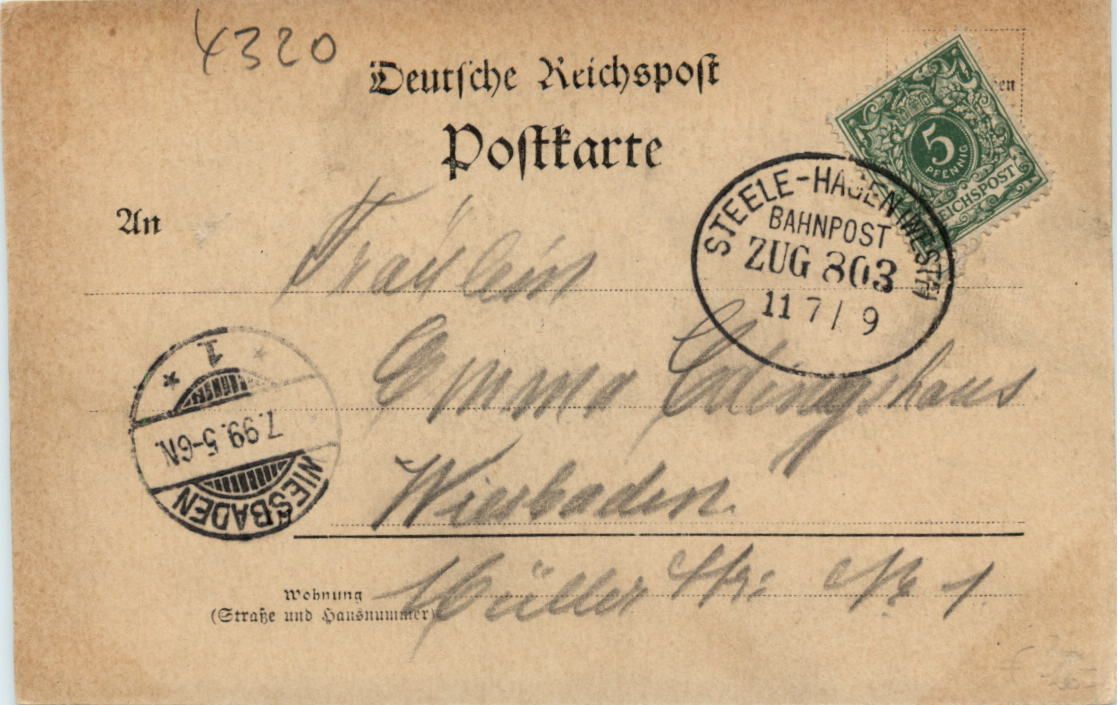 4320
Deutsche Reichspost
Postkarte
5
PFENNIG
REICHSPOST
STEELE-HAGEN (WESTF)
BAHNPOST
ZUG 803
11 7 / 9
An
Fräulein
Emma Edingshaus
Wiesbaden.
Müller Str: No 1.
Wohnung
(Straße und Hausnummer)
WIESBADEN
7.99.5-6N.
* 1. *